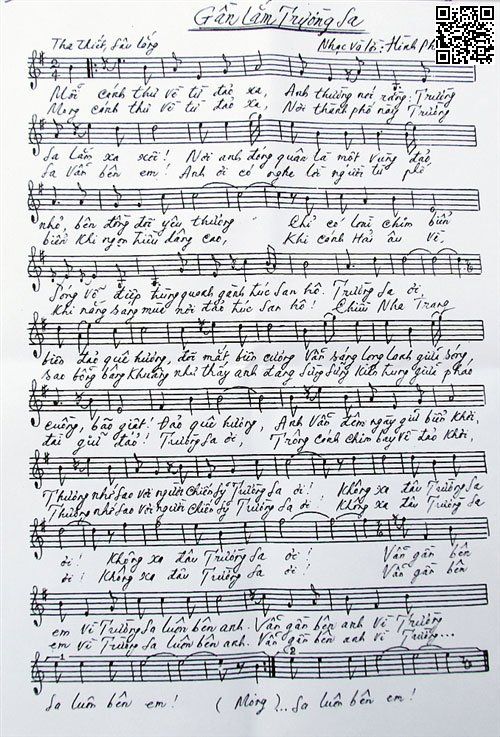 Gần Lắm Trường Sa
Tha thiết, sâu lắng
Nhạc và lời: Hình Ph
Mỗi cánh thư về từ đảo xa, Anh thường nói rằng: Trường
Mong cánh thư về từ đảo xa, Nơi thành phố này Trường
Sa lắm xa xôi! Nơi anh đóng quân là một vùng đảo
Sa vẫn bên em! Anh ơi có nghe lời người từ phố
nhỏ, bên đồng đội yêu thương Chỉ có loài chim biển
biển Khi ngọn triều dâng cao, Khi cánh Hải âu về,
Sóng vỗ điệp trùng quanh gành trúc San hô. Trường Sa ơi,
Khi nắng sang mùa nơi đảo trúc San hô! Chiều Nha Trang
biển đảo quê hương, đôi mắt biên cương vẫn sáng long lanh giữa sóng
sao bỗng bâng khuâng như thấy anh đứng sừng sững hiên ngang giữa pháo
cuồng, bão giật! Đảo quê hương, Anh vẫn đêm ngày giữ biển trời,
đài giữ đảo! Trường Sa ơi, Trông cánh chim bay về đảo trời,
Thương nhớ sao với người Chiến sỹ Trường Sa ơi! Không xa đâu Trường Sa
Thương nhớ sao với người Chiến sỹ Trường Sa ơi! Không xa đâu Trường Sa
ơi! Không xa đâu Trường Sa ơi! Vẫn gần bên
ơi! Không xa đâu Trường Sa ơi! Vẫn gần bên
em vì Trường Sa luôn bên anh. Vẫn gần bên anh vì Trường
em vì Trường Sa luôn bên anh. Vẫn gần bên anh vì Trường...
1 2
Sa luôn bên em! (Mong)...Sa luôn bên em!